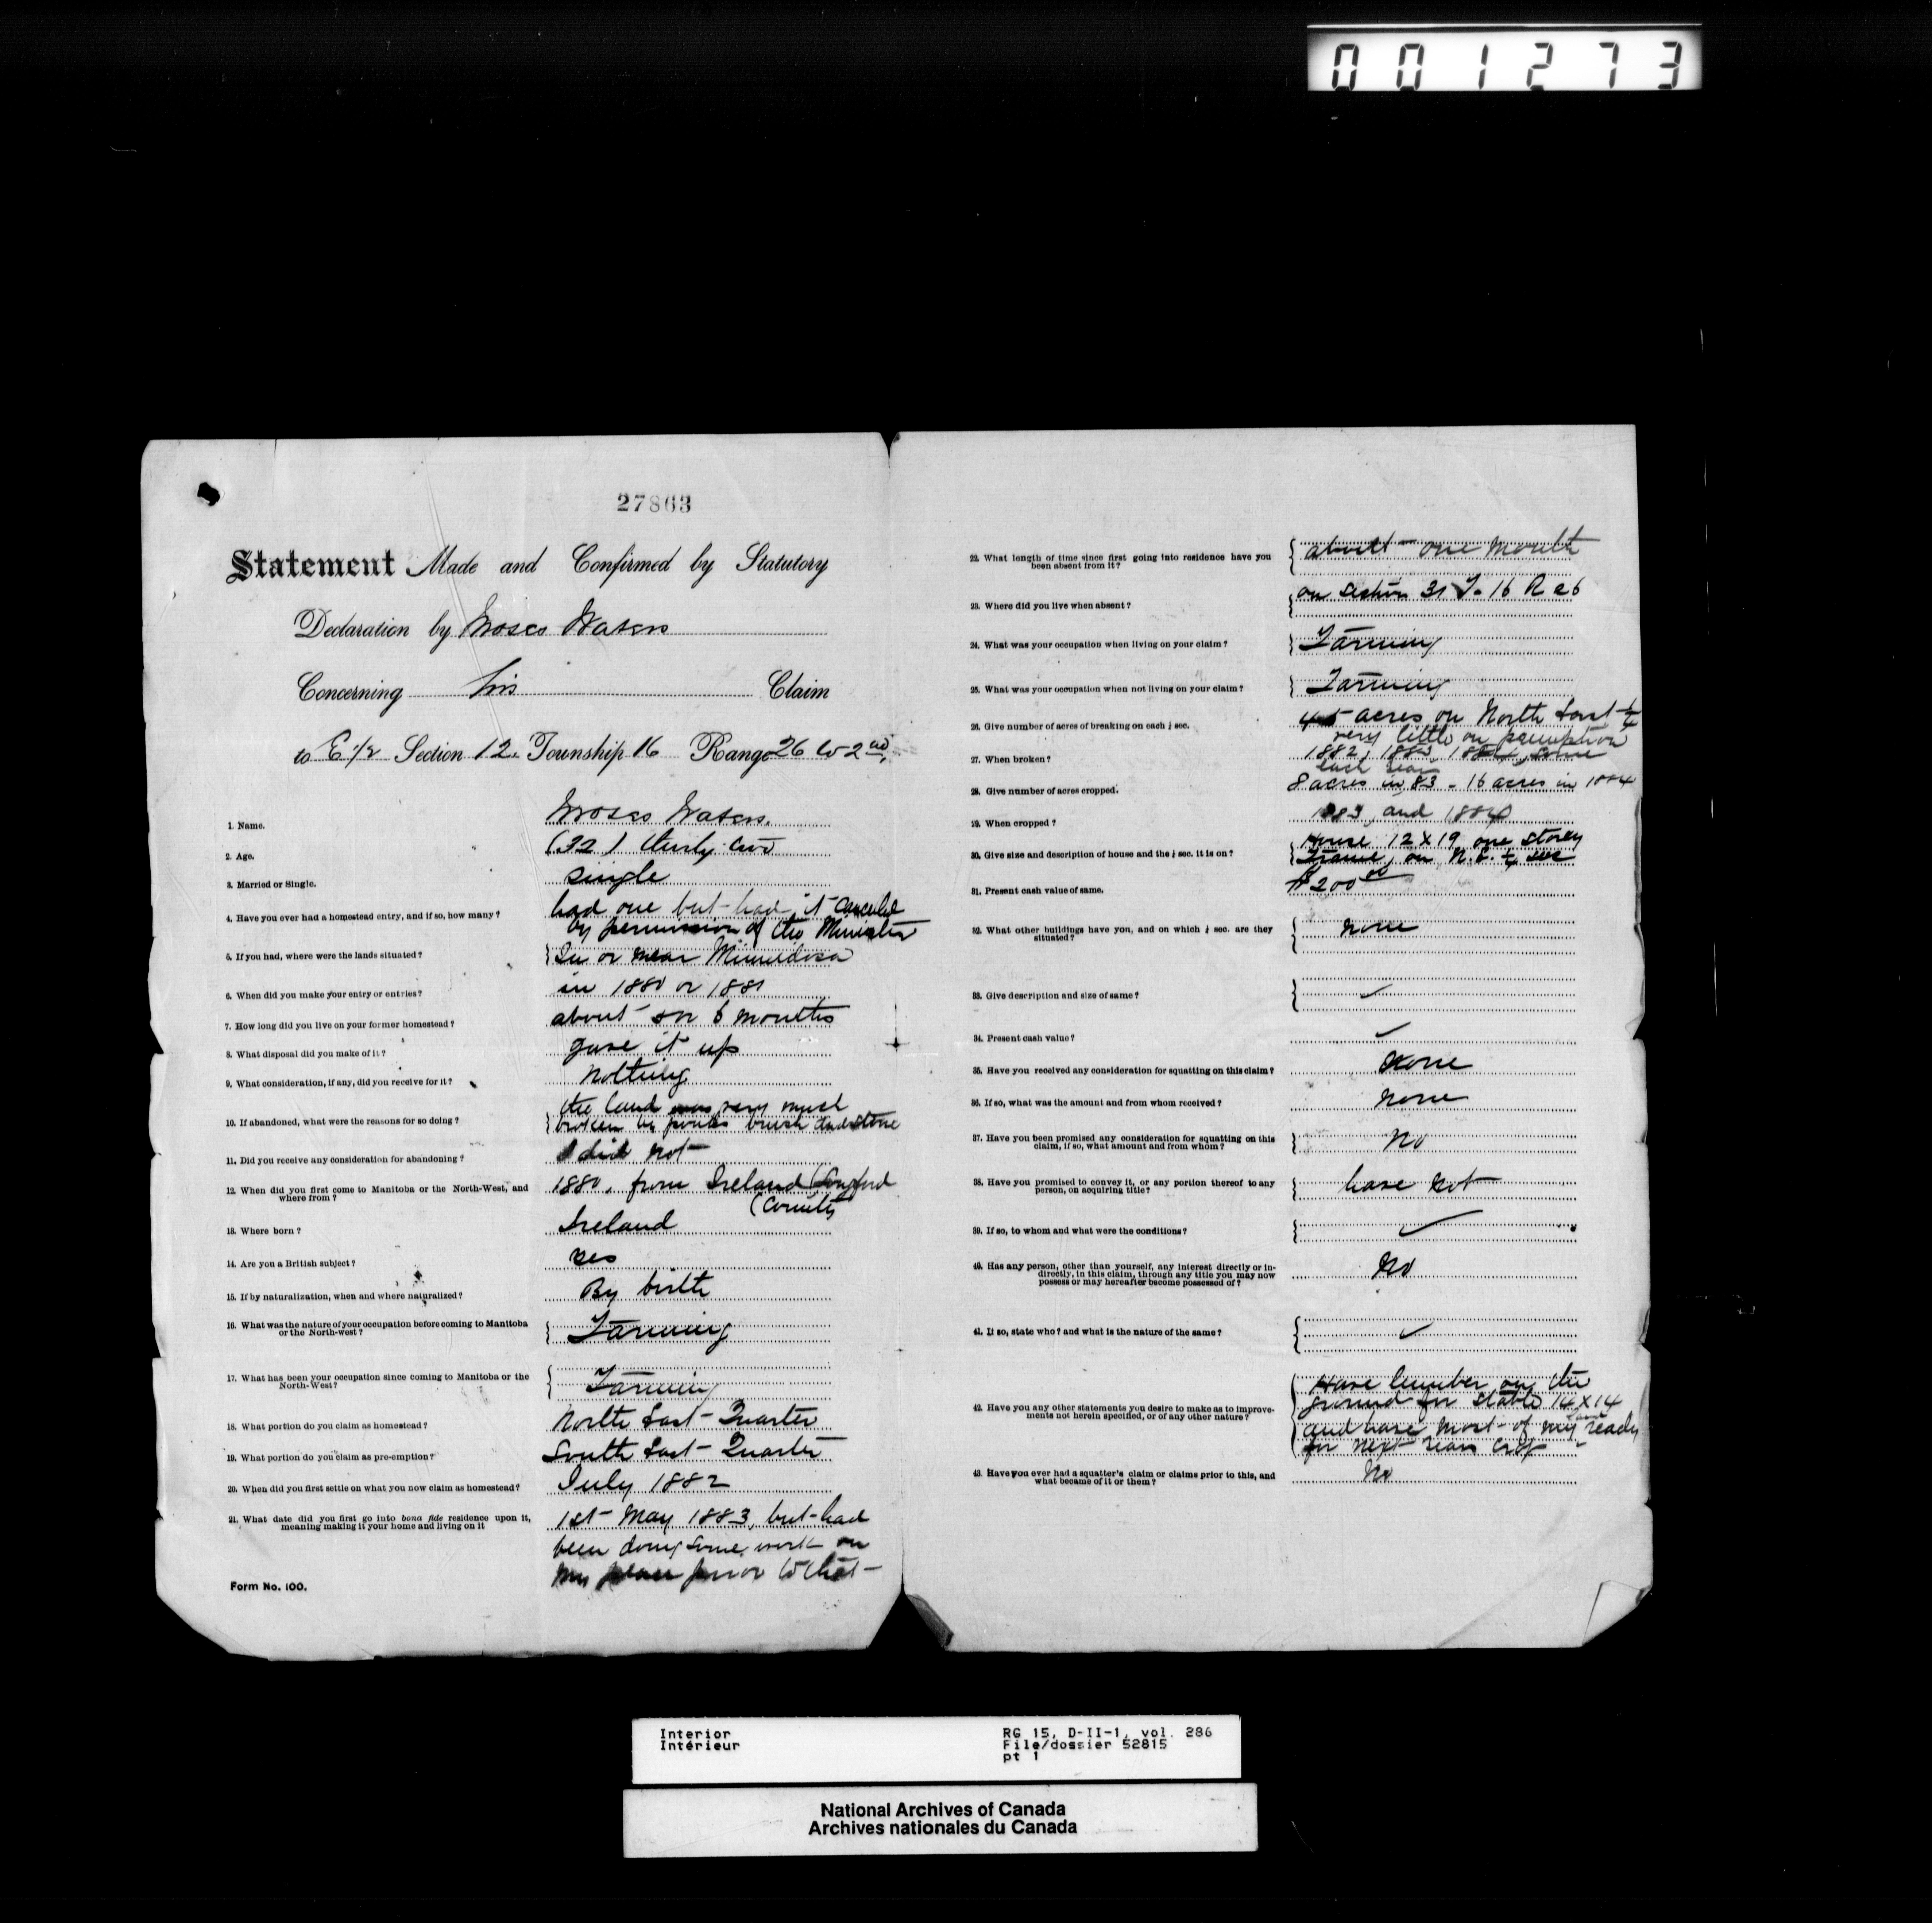 001273
27863
Statement Made and Confirmed by Statutory
Declaration by Moses Waters
Concerning his Claim
to E 1/2 Section 12. Township 16 Range 26 W 2nd
1. Name. Moses Waters.
2. Age. (32) thirty two
3. Married or Single. single
4. Have you ever had a homestead entry, and if so, how many? had one but had it cancelled
by permission of the Minister
5. If you had, where were the lands situated? In or near Minnedosa
6. When did you make your entry or entries? in 1880 or 1881
7. How long did you live on your former homestead? about 5 or 6 months
8. What disposal did you make of it? gave it up
9. What consideration, if any, did you receive for it? nothing
10. If abandoned, what were the reasons for so doing? the land was very much
broken by ponds brush and stone
11. Did you receive any consideration for abandoning? I did not
12. When did you first come to Manitoba or the North-West, and
where from? 1880, from Ireland (Longford
(County
13. Where born? Ireland
14. Are you a British subject? yes
15. If by naturalization, when and where naturalized? By birth
16. What was the nature of your occupation before coming to Manitoba
or the North-west? Farming
17. What has been your occupation since coming to Manitoba or the
North-West? Farming
18. What portion do you claim as homestead? North East Quarter
19. What portion do you claim as pre-emption? South East Quarter
20. When did you first settle on what you now claim as homestead? July 1882
21. What date did you first go into bona fide residence upon it,
meaning making it your home and living on it 1st May 1883, but had
been doing some work on
my place prior to that
Form No. 100.
22. What length of time since first going into residence have you
been absent from it? about one month
23. Where did you live when absent? on section 31 T. 16 R 26
24. What was your occupation when living on your claim? Farming
25. What was your occupation when not living on your claim? Farming
26. Give number of acres of breaking on each ¼ sec. 45 acres on North East ¼
very little on preemption
27. When broken? 1882, 1883, 1884, some
each year
28. Give number of acres cropped. 8 acres in 83 - 16 acres in 1884
29. When cropped? 1883, and 1884
30. Give size and description of house and the ¼ sec. it is on? House 12 x 19 one storey
Frame, on N.E. ¼ sec
31. Present cash value of same. $200 00
32. What other buildings have you, and on which ¼ sec. are they
situated? none
33. Give description and size of same? ✓
34. Present cash value? ✓
35. Have you received any consideration for squatting on this claim? none
36. If so, what was the amount and from whom received? none
37. Have you been promised any consideration for squatting on this
claim, if so, what amount and from whom? No
38. Have you promised to convey it, or any portion thereof to any
person, on acquiring title? have not
39. If so, to whom and what were the conditions? ✓
40. Has any person, other than yourself, any interest directly or in-
directly, in this claim, through any title you may now
possess or may hereafter become possessed of? No
41. If so, state who? and what is the nature of the same? ✓
42. Have you any other statements you desire to make as to improve-
ments not herein specified, or of any other nature? Have lumber on the
ground for stable 14 x 14
and have most of my land ready
for next years crop
43. Have you ever had a squatter's claim or claims prior to this, and
what became of it or them? No
Interior
Intérieur
RG 15, D-II-1, vol. 286
File/dossier 52815
pt 1
National Archives of Canada
Archives nationales du Canada